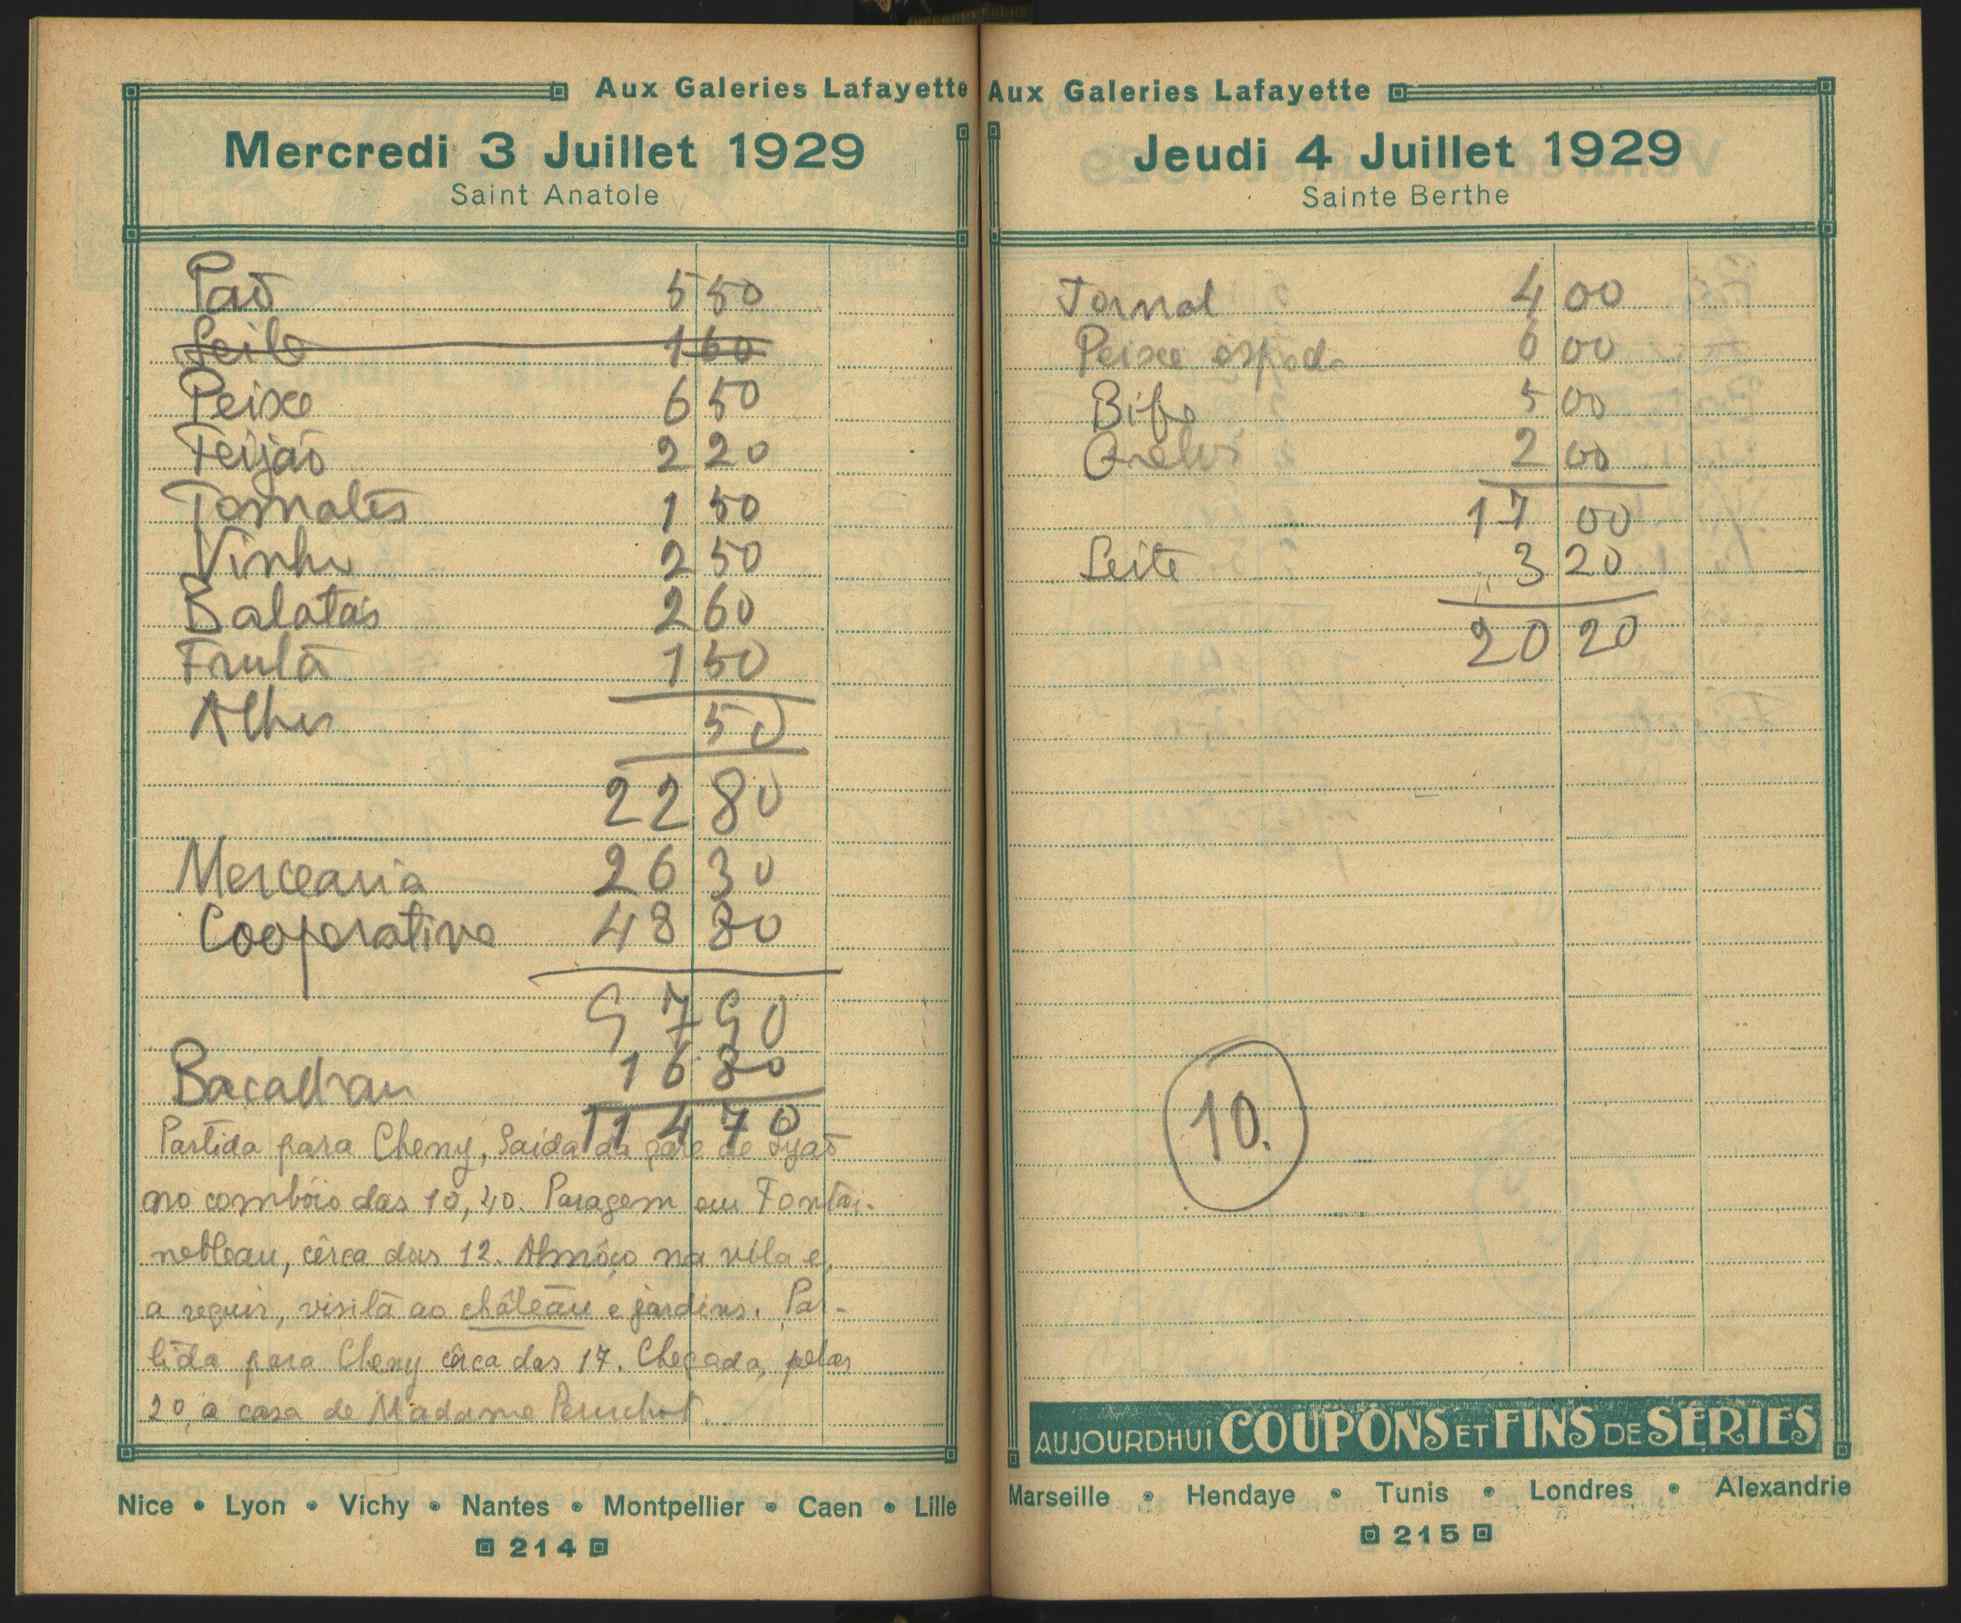 Aux Galeries Lafayette
Mercredi 3 Juillet 1929
Saint Anatole
Pão 5 50
Leite 1 60
Peixe 6 50
Feijão 2 20
Tomates 1 50
Vinho 2 50
Batatas 2 60
Fruta 1 50
Alhos 50
22 80
Mercearia 26 30
Cooperativa 48 80
97 90
Bacalhau 16 80
114 70
Partida para Cheny, Saída da gare de Lyão
no combóio das 10,40. Paragem em Fontai-
nebleau, cêrca das 12. Almôço na vila e,
a seguir, visita ao château e jardins. Par-
tida para Cheny cêrca das 17. Chegada, pelas
20, a casa de Madame
Nice • Lyon • Vichy • Nantes • Montpellier • Caen • Lille
214
Aux Galeries Lafayette
Jeudi 4 Juillet 1929
Sainte Berthe
Jornal 4 00
Peixe espada 6 00
Bife 5 00
2 00
17 00
Leite 3 20
20 20
10.
AUJOURDHUI COUPONS ET FINS DE SÉRIES
Marseille • Hendaye • Tunis • Londres • Alexandrie
215